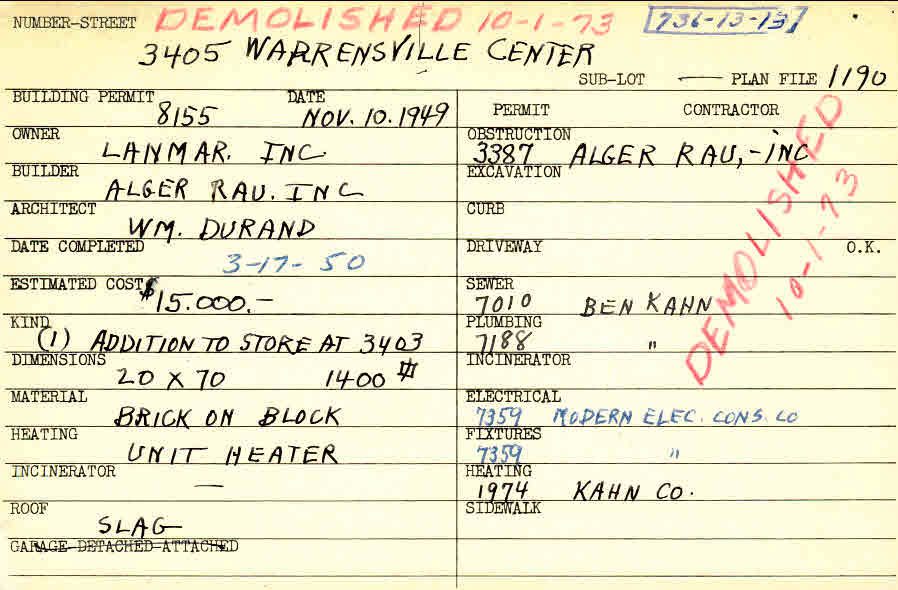 NUMBER-STREET DEMOLISHED 10-1-73 736-13-13
3405 WARRENSVILLE CENTER
SUB-LOT — PLAN FILE 1190
BUILDING PERMIT DATE
8155 NOV. 10. 1949
OWNER
LANMAR. INC
BUILDER
ALGER RAU. INC
ARCHITECT
WM. DURAND
DATE COMPLETED
3-17-50
ESTIMATED COST
$15.000.-
KIND
(1) ADDITION TO STORE AT 3403
DIMENSIONS
20 X 70 1400 #
MATERIAL
BRICK ON BLOCK
HEATING
UNIT HEATER
INCINERATOR
—
ROOF
SLAG
GARAGE-DETACHED-ATTACHED
PERMIT CONTRACTOR
OBSTRUCTION
3387 ALGER RAU,-INC
EXCAVATION
CURB
DRIVEWAY O.K.
SEWER
7010 BEN KAHN
PLUMBING
7188 "
INCINERATOR
ELECTRICAL
7359 MODERN ELEC. CONS. CO
FIXTURES
7359 "
HEATING
1974 KAHN CO.
SIDEWALK
DEMOLISHED
10-1-73